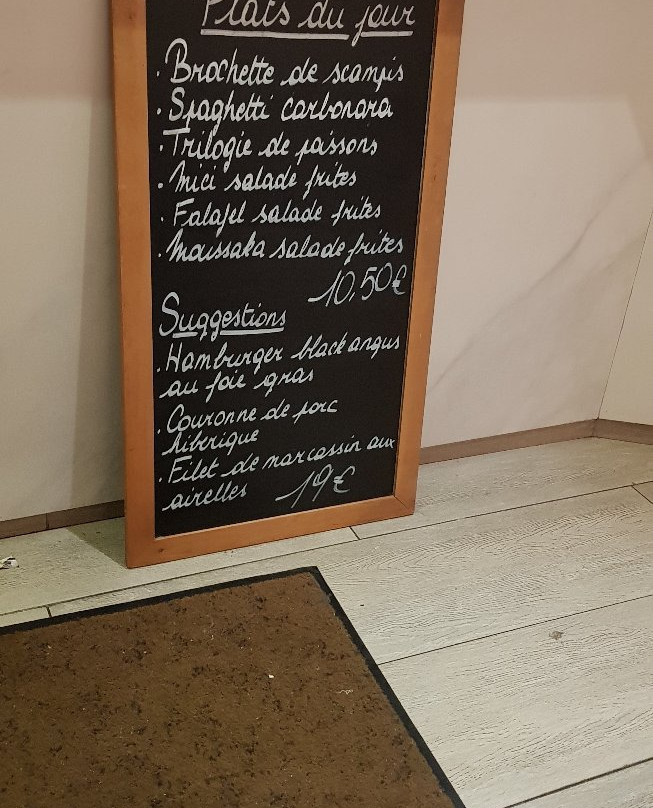 Plats du jour
· Brochette de scampis
· Spaghetti carbonara
· Trilogie de poissons
· Mici salade frites
· Falafel salade frites
· Moussaka salade frites
10,50€
Suggestions
· Hamburger black angus
au foie gras
· Couronne de porc
hiberique
· Filet de marcassin aux
airelles 19€